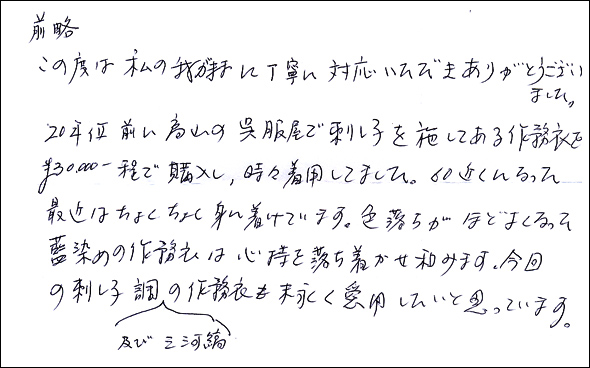 前略
この度は私の我がままに丁寧に対応いただきありがとうござい
ました。
20年位前に高山の呉服屋で刺し子を施してある作務衣を
¥30.000-程で購入し、時々着用してました。60近くになって
最近はちょくちょく身に着けています。色落ちがほどよくなって
藍染めの作務衣は心持を落ち着かせ和みます。今回
の刺し子調の作務衣も末永く愛用したいと思っています。
及び三河縞